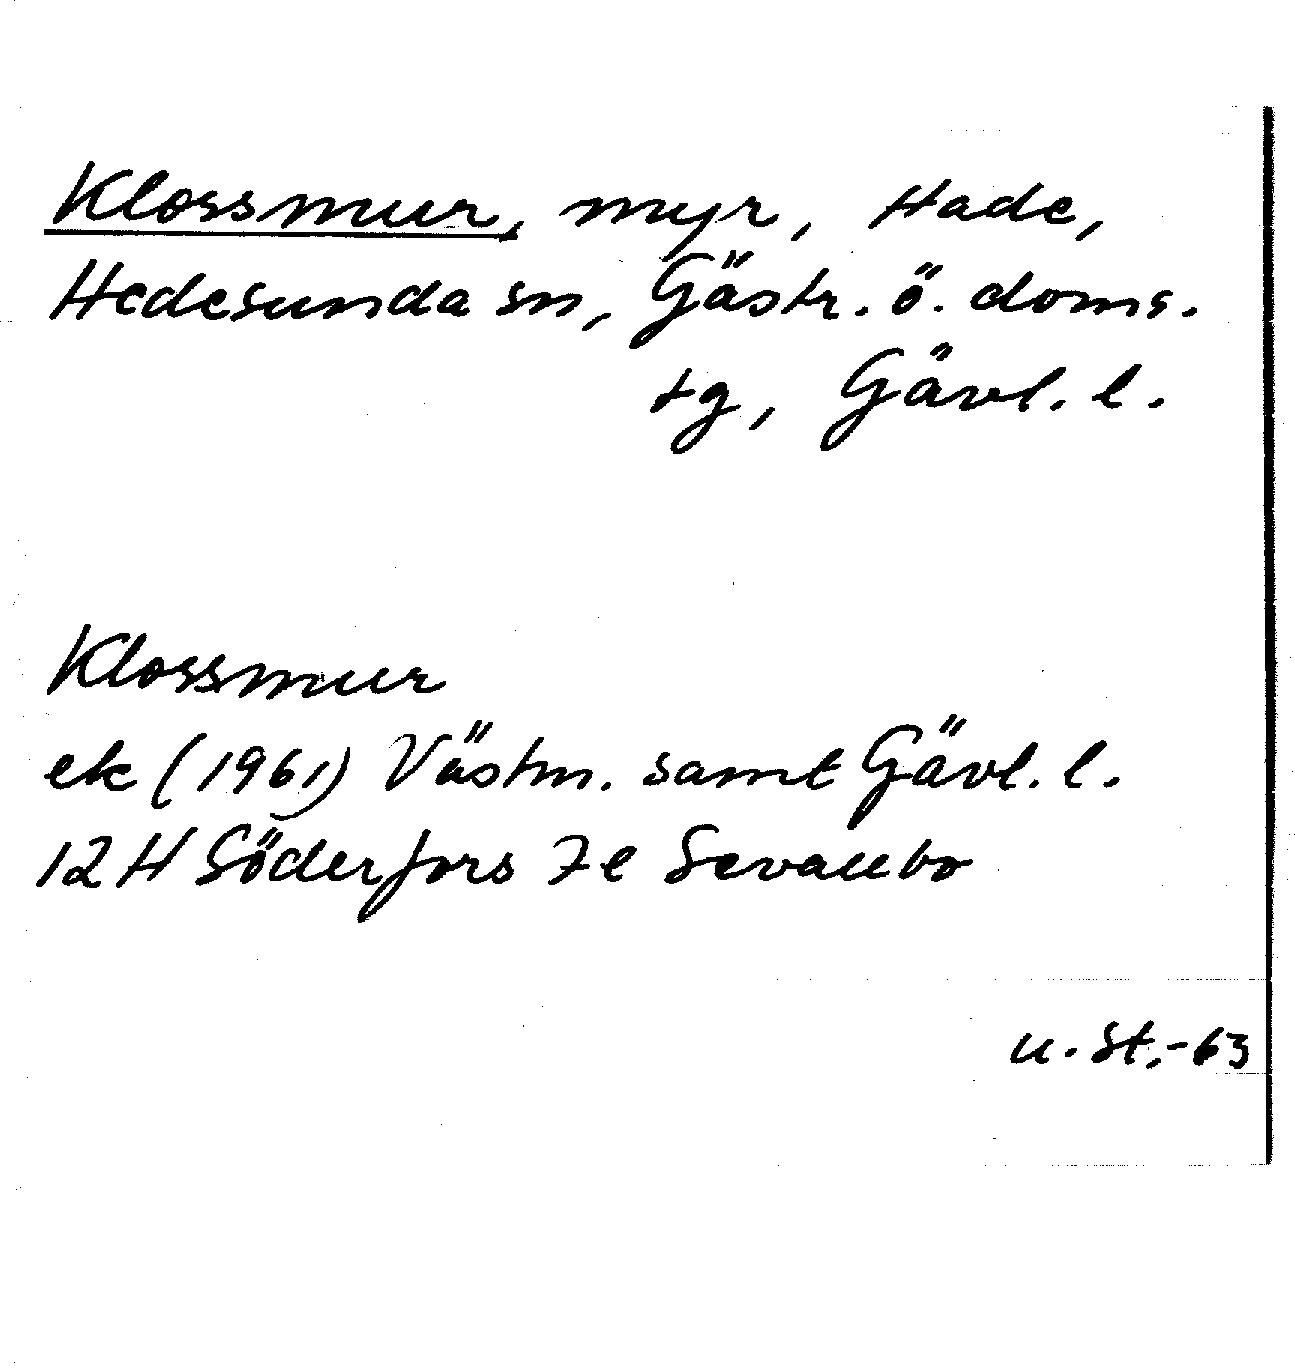 Klossmur, myr, Hade,
Hedesunda sn, Gästr. ö. doms.
tg, Gävl. l.
Klossmur
ek (1961) Västm. samt Gävl. l.
12 H Söderfors 7e Sevallbo
u. St.-63